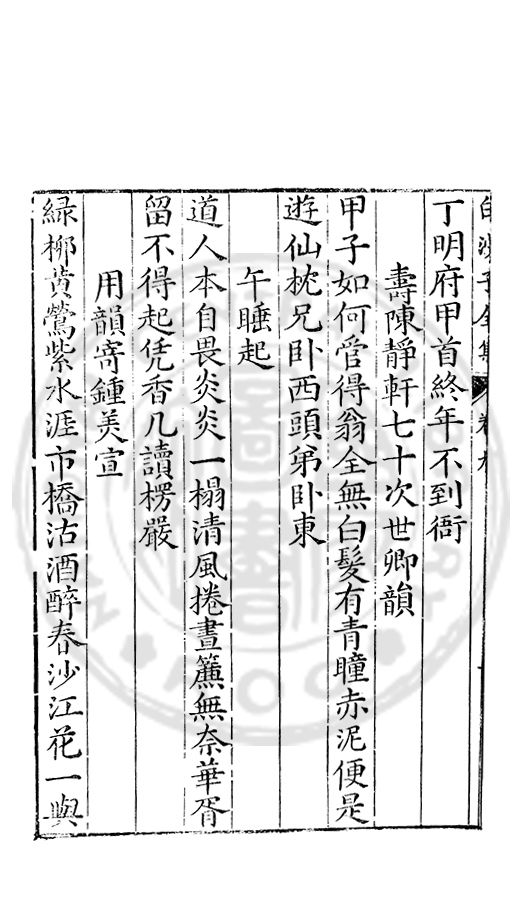 白沙子全集 卷九
丁明府甲首終年不到衙
壽陳靜軒七十次世卿韻
甲子如何管得翁全無白髮有青瞳赤泥便是
遊仙枕兄卧西頭弟卧東
午睡起
道人本自畏炎炎一榻清風捲晝簾無奈華胥
留不得起凭香几讀楞嚴
用韻寄鍾美宣
緑柳黄鶯紫水涯市橋沽酒醉春沙江花一與